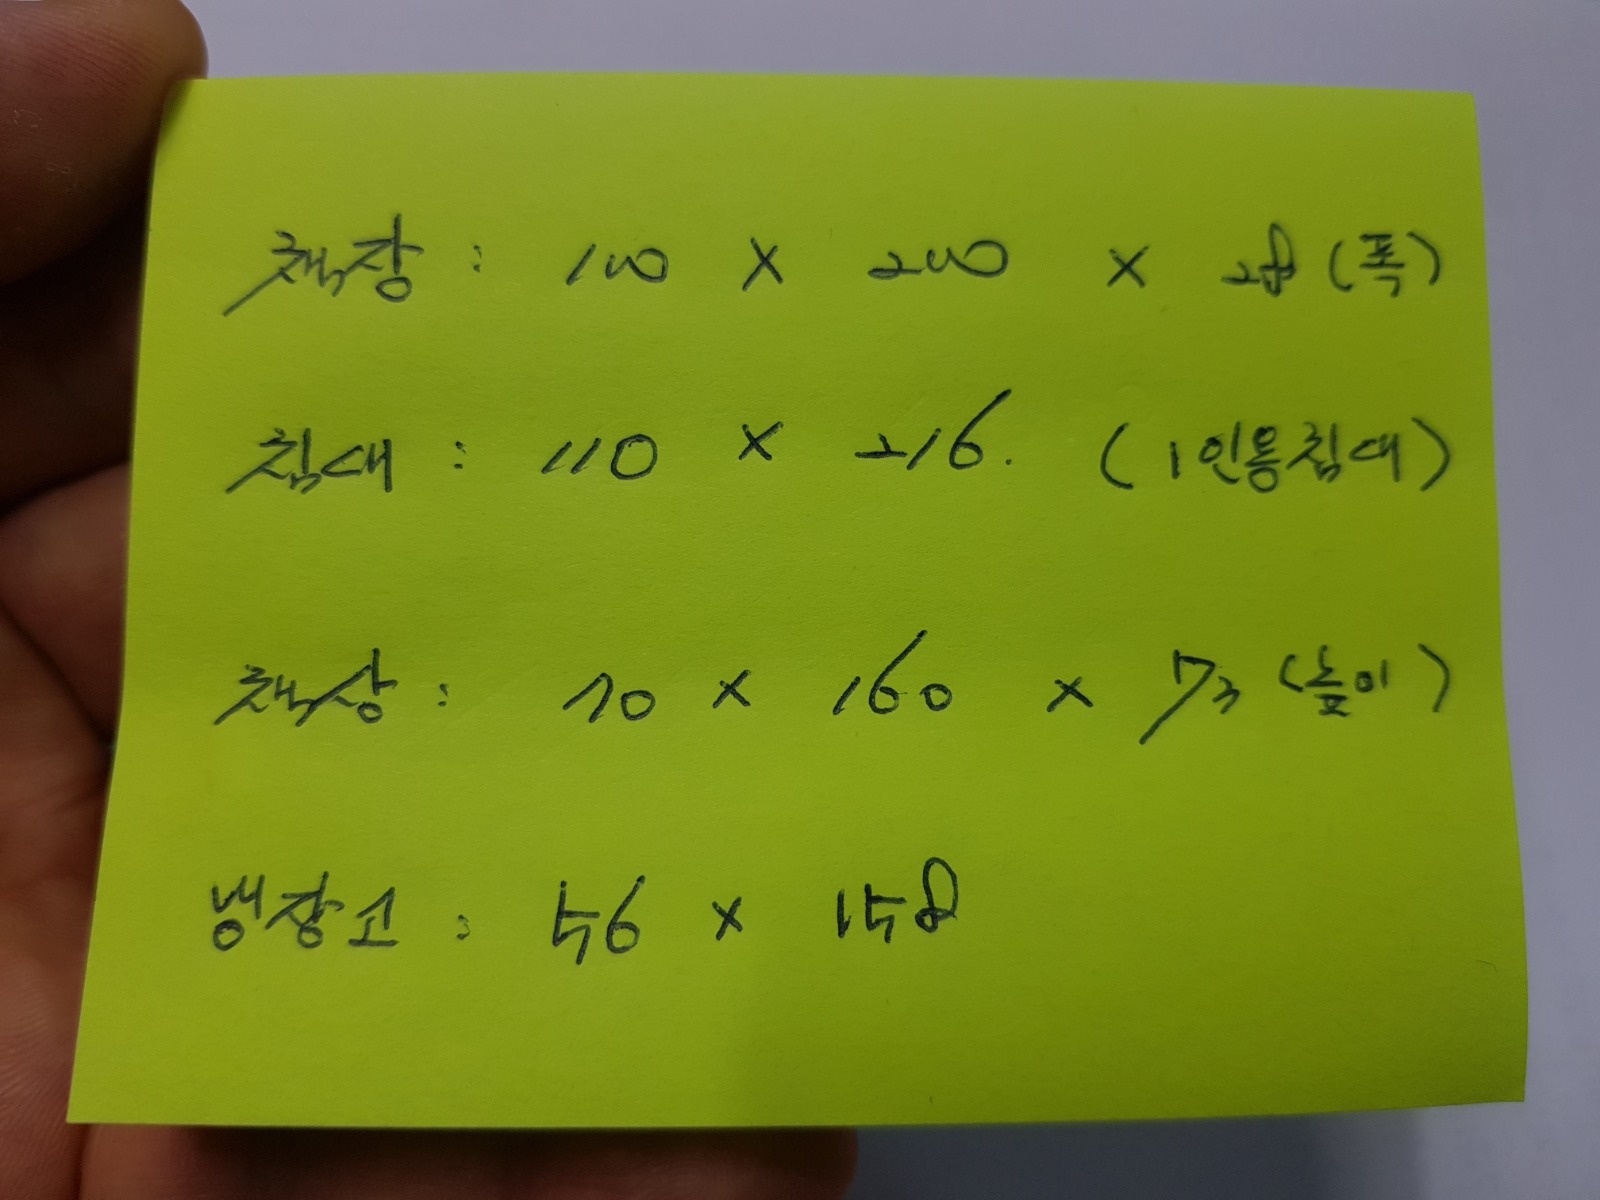 책장 : 100 x 200 x 28 (폭)
침대 : 110 x 216. (1인용침대)
책상 : 70 x 160 x 73 (높이)
냉장고 : 56 x 158